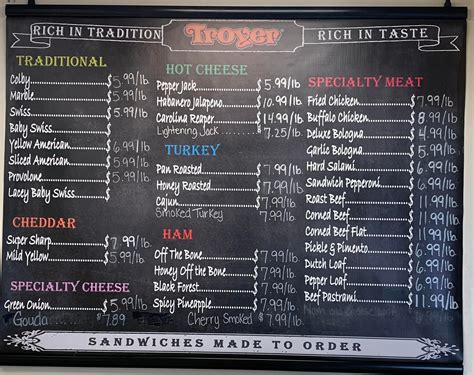 RICH IN TRADITION
Troyer
RICH IN TASTE
TRADITIONAL
Colby $5.99/lb
Marble $5.99/lb
Swiss $5.99/lb
Baby Swiss $
Yellow American 6.99/lb
Sliced American $5.99/lb
Provolone $5.99/lb
Lacey Baby Swiss $
CHEDDAR
Super Sharp $7.99/lb
Mild Yellow $5.99/lb
SPECIALTY CHEESE
Green Onion $5.99/lb
Gouda $7.89
HOT CHEESE
Pepper Jack $5.99/lb
Habanero Jalapeno $10.99/lb
Carolina Reaper $14.99/lb
Lightening Jack $7.25/lb
TURKEY
Pan Roasted $7.99/lb
Honey Roasted $7.99/lb
Cajun $7.99/lb
Smoked Turkey
HAM
Off The Bone $7.99/lb
Honey Off The Bone $7.99/lb
Black Forest $7.99/lb
Spicy Pineapple $7.99/lb
Cherry Smoked $7.99/lb
SPECIALTY MEAT
Fried Chicken $7.99/lb
Buffalo Chicken
Deluxe Bologna
Garlic Bologna
Hard Salami
Sandwich Pepperoni
Roast Beef
Corned Beef
Corned Beef Flat
Pickle & Pimento
Dutch Loaf $6.99/lb
Pepper Loaf $6.99/lb
Beef Pastrami $11.99/lb
SANDWICHES MADE TO ORDER